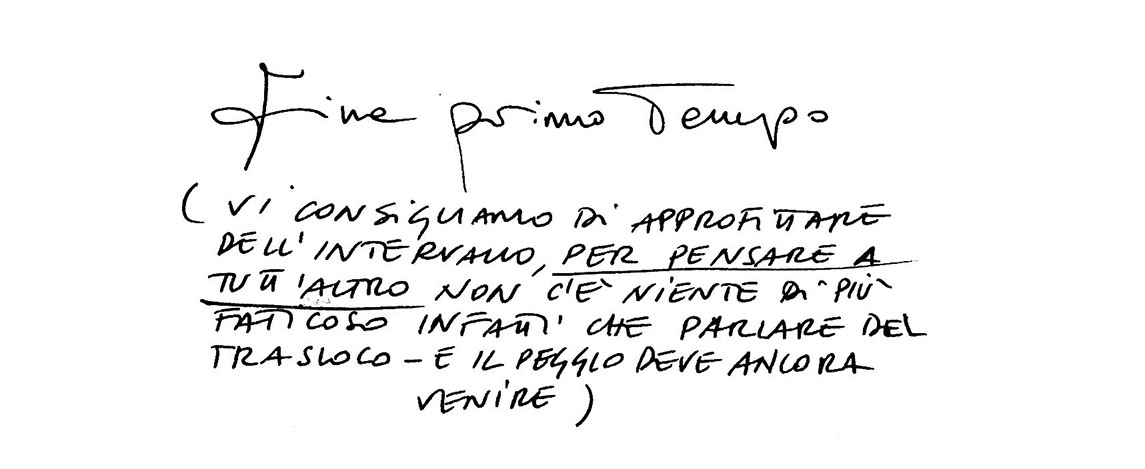 Fine primo Tempo
( VI CONSIGLIAMO DI APPROFITTARE
DELL'INTERVALLO, PER PENSARE A
TUTT'ALTRO NON C'È NIENTE DI PIÙ
FATICOSO INFATTI CHE PARLARE DEL
TRASLOCO - E IL PEGGIO DEVE ANCORA
VENIRE )